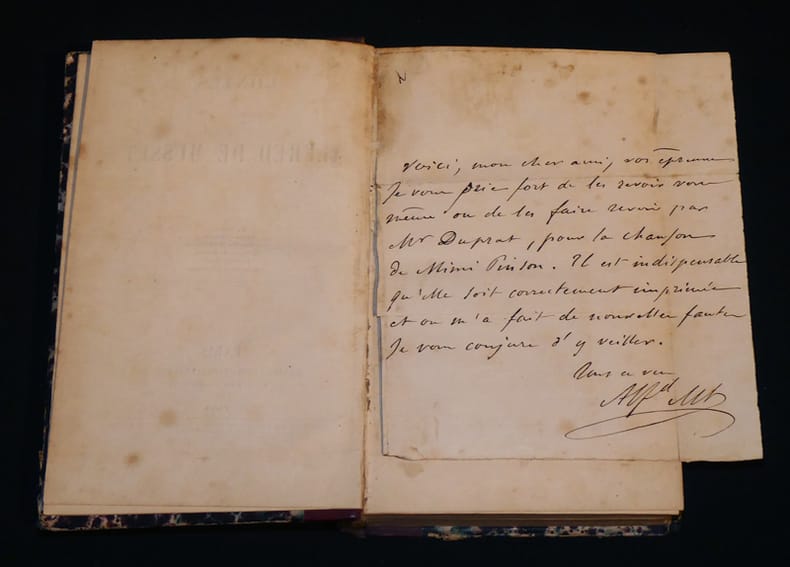 Voici, mon cher ami, vos épreuves
Je vous prie fort de les revoir vous
même ou de les faire revoir par
Mr Duprat, pour la chanson
de Mimi Pinson. Il est indispensable
qu'elle soit correctement imprimée
et on m'a fait de nouvelles fautes
Je vous conjure d'y veiller.
Tout à vous
Alfd Mt
CONTES
ALFRED DE MUSSET
PARIS